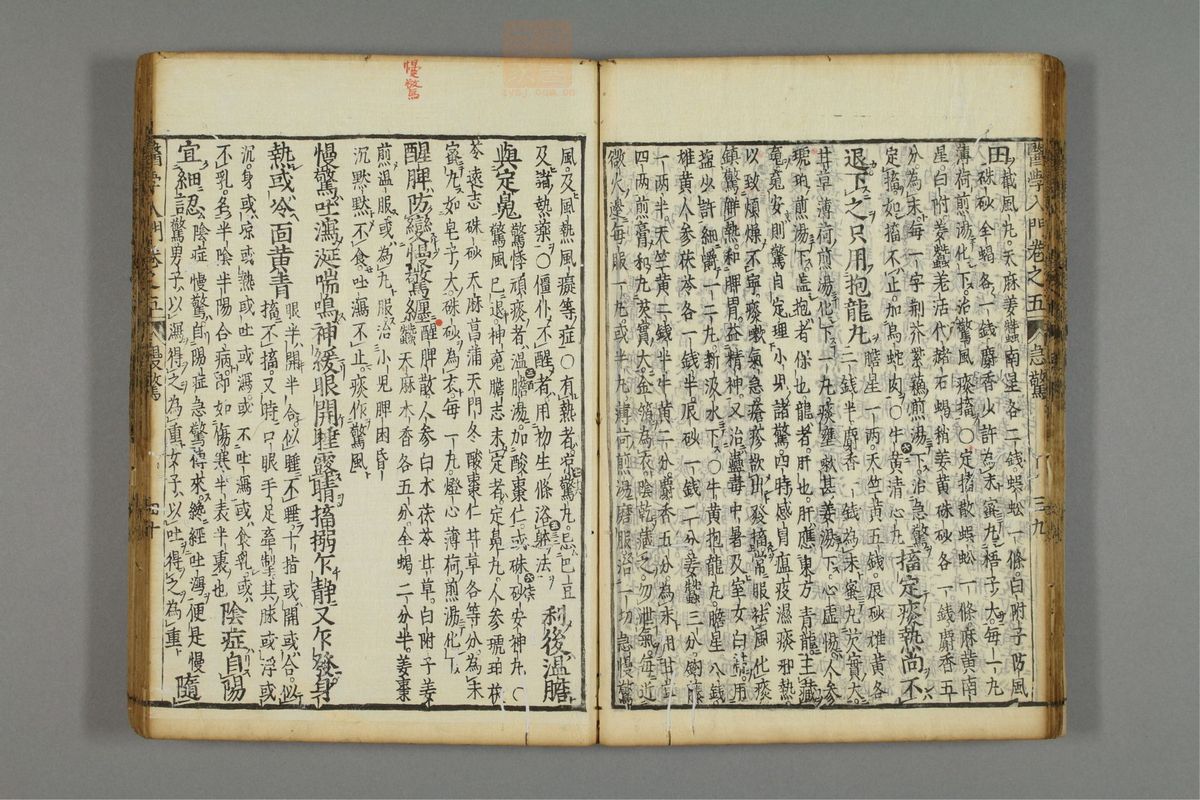 醫學入門卷之五 急驚 三九
田截風丸。天麻姜蠶南星各二錢。蜈蚣一條。白附子防風
硃砂全蝎各一錢。麝香少許。為末蜜丸梧子大。每一丸
薄荷煎湯化下。治驚風痰搐。○定搐散。蜈蚣一條。麻黃南
星白附姜蠶羌活代赭石蝎稍姜黃硃砂各一錢。麝香五
分。為末。每一字。荊芥紫蘇煎湯下。治急驚
定搐。如搐不止。加烏蛇肉。○牛黃清心丸。搐定痰熱尚不
退下之只用抱龍丸膽星一兩。天竺黃五錢。辰砂雄黃各
二錢半。麝香一錢。為末蜜丸芡實大
甘草薄荷煎湯化下一丸。痰壅嗽甚姜湯下。心虛人參
琥珀煎湯下。盖抱者保也。龍者肝也。肝應東方青龍主藏
魂。魂安則驚自定理。小兒諸驚四時感冒瘟疫濕痰邪熱
以致煩燥不寧。痰嗽氣急瘡疹欲出發搐。常服袪風化痰
鎮驚解熱。和脾胃。益精神。又治蠱毒中暑及室女白帶。用
鹽少許細嚼一二丸。新汲水下。○牛黃抱龍丸。膽星八錢
雄黃人參茯苓各一錢半。辰砂一錢二分。姜蠶三分。鈎藤
一兩半。天竺黃二錢半。牛黃二分。麝香五分。為末。用甘草
四兩煎膏和丸芡實大。金箔為衣。陰乾藏之。勿泄氣。每近
微火邊。每服一丸或半丸。薄荷煎湯磨服。治一切急慢驚
風。及風熱風癡等症。○有熱者凉驚丸。忌巴豆
及諸熱藥。○僵仆不醒者。用初生條浴軆法。利後溫膽
與定魄驚悸頑痰者。溫膽湯加酸棗仁。或硃砂安神丸。○
驚風已退。神魂膽志未定者。定魄丸。人參琥珀茯
苓遠志硃砂天麻菖蒲天門冬酸棗仁甘草各等分。為末
蜜丸如皂子大。硃砂為衣。每一丸。燈心薄荷煎湯化下
醒脾防變慢驚纏醒脾散。人參白朮茯苓甘草白附子姜
蠶天麻木香各五分。全蝎二分半。姜棗
煎溫服。或為丸服。治小兒脾困昏
沉默默不食。吐瀉不止。痰作驚風
慢驚吐瀉涎喘鳴神緩眼開睡露睛搐搦乍靜又乍發身
熱或冷面黃青眼半開半合。似睡不睡。十指或開或合。似
搐不搐。又時只眼手足牽掣。其脉或浮或
沉。身或凉或熱。或吐或瀉。或不吐瀉。或食乳。或
不乳。名半陰半陽合病。即如傷寒半表半裏也。陰症自陽
宜細認陰症慢驚。自陽症急驚傳來。纔經吐瀉。便是慢
驚。男子以瀉得之為重。女子以吐得之為重。隨
醫學入門卷之五 慢驚 七十
慢驚